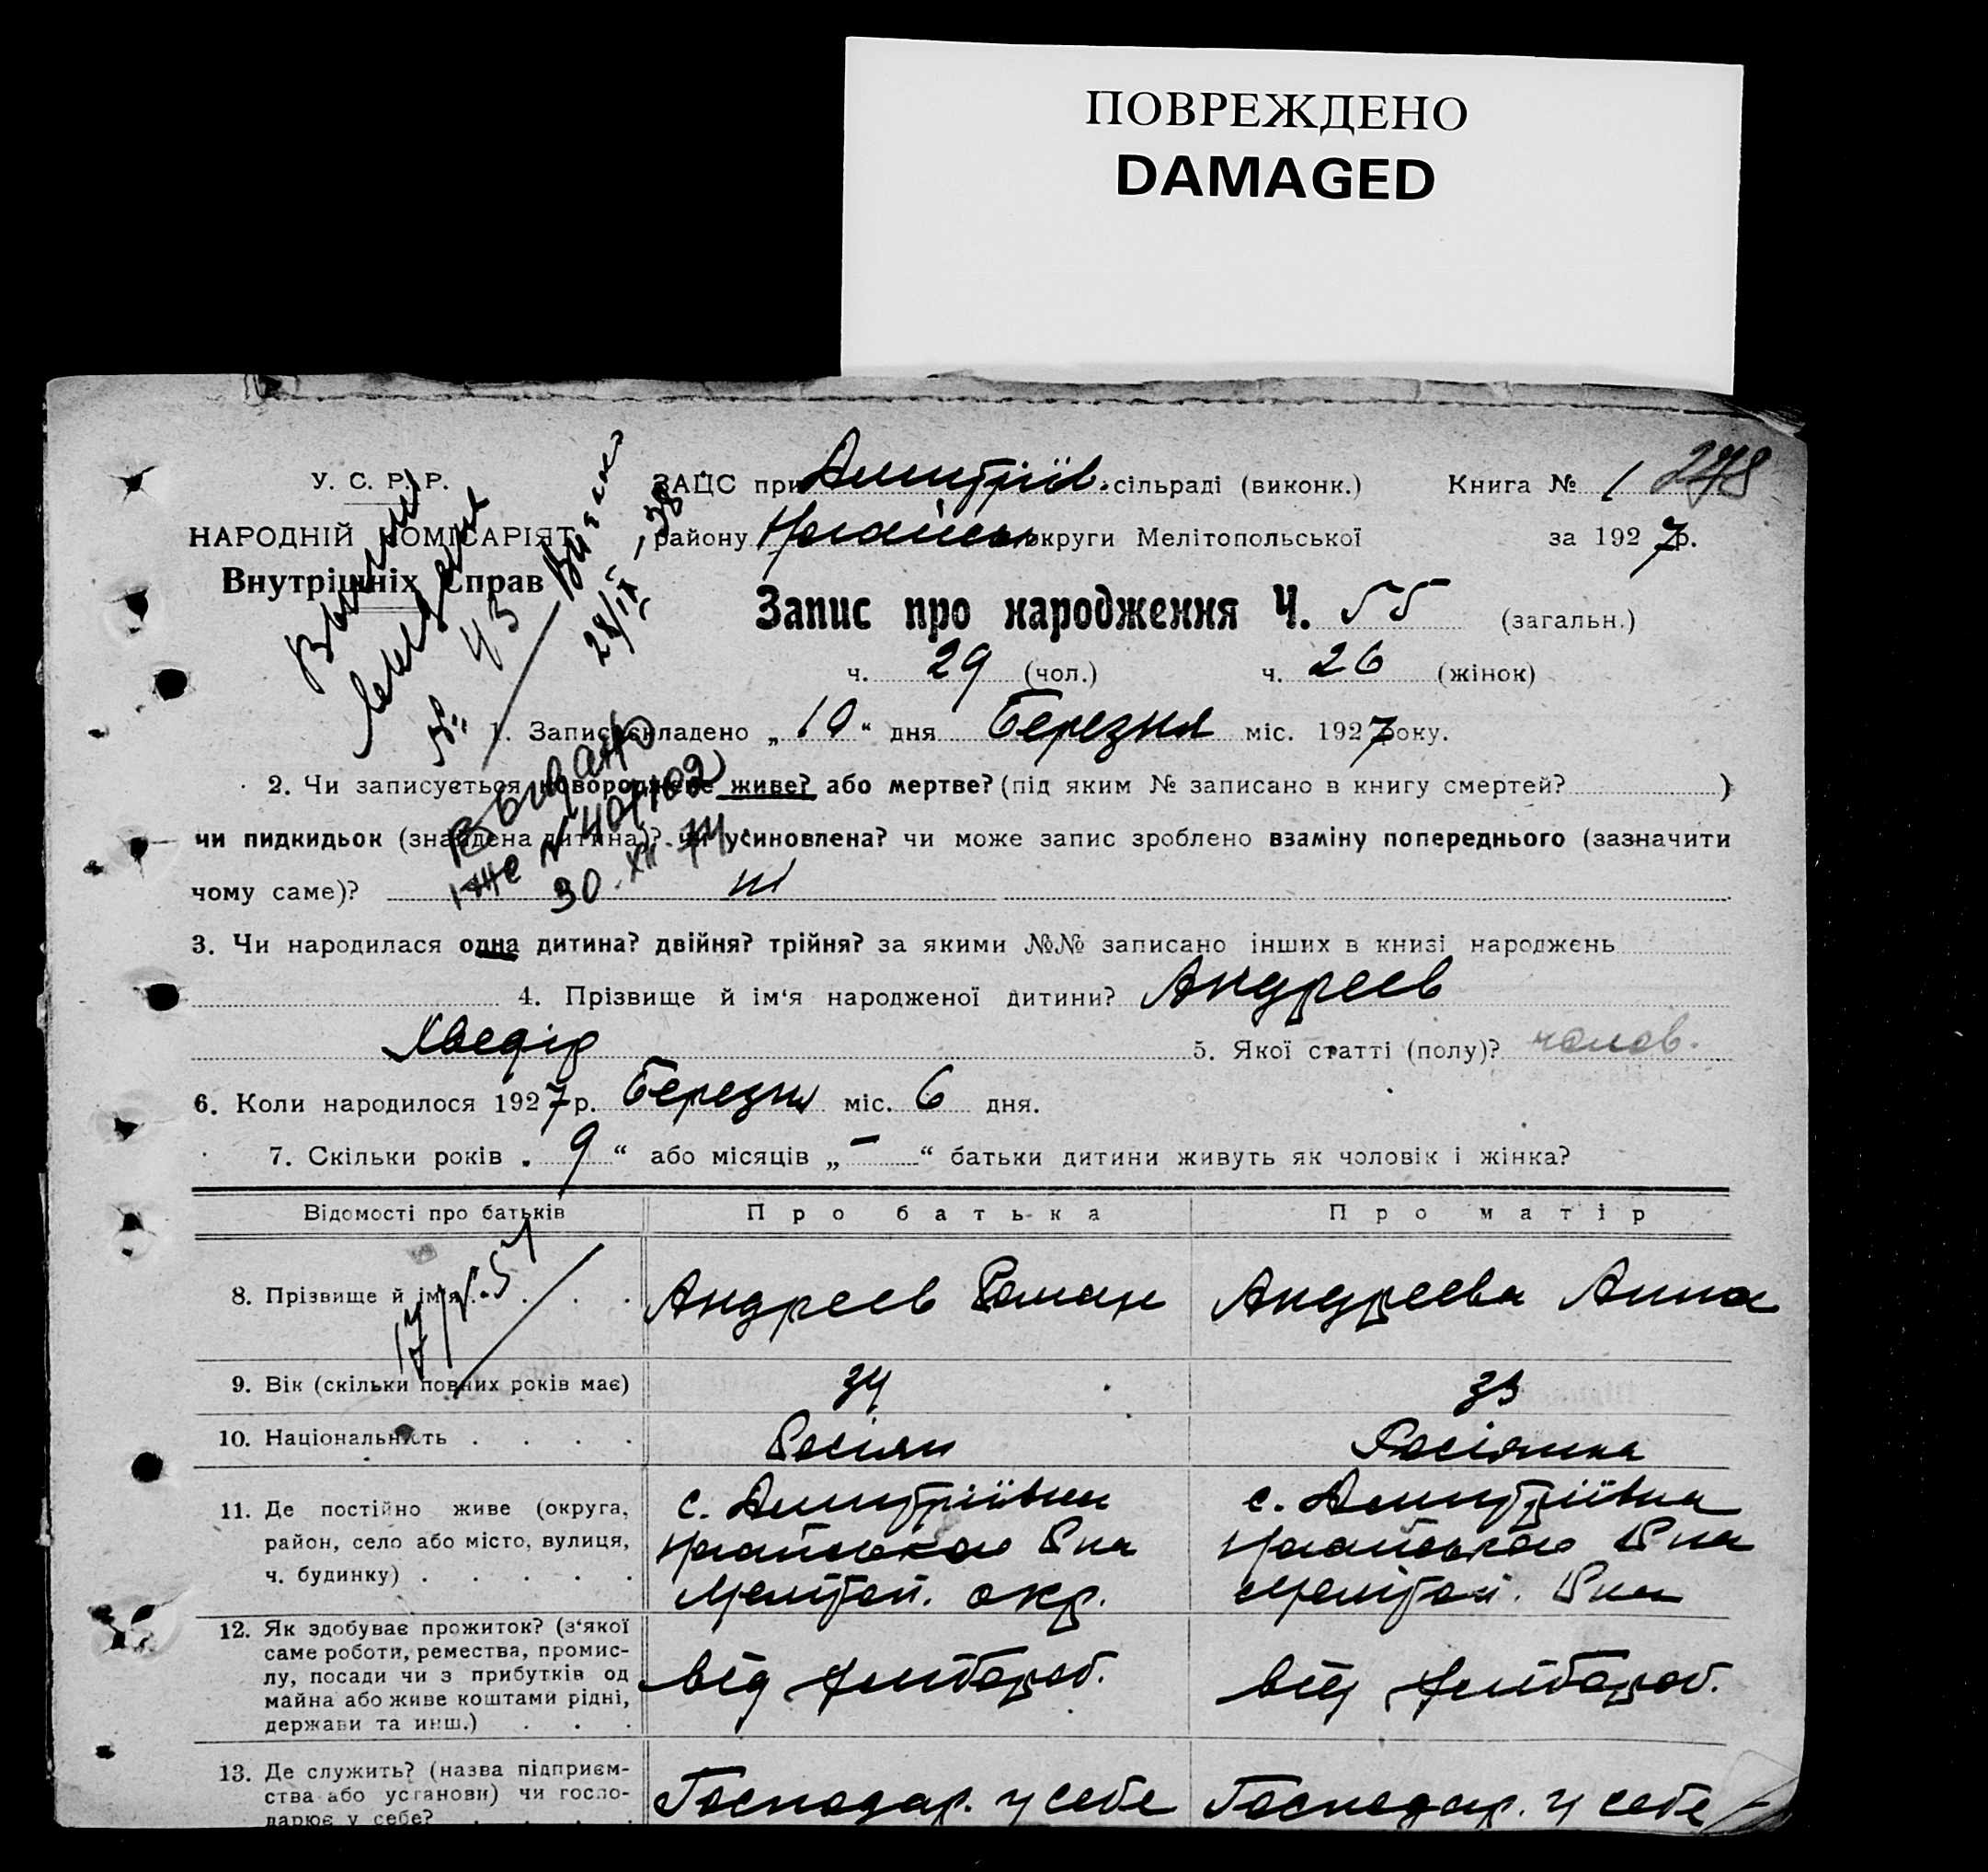 ПОВРЕЖДЕНО
DAMAGED
У. С. Р. Р.
НАРОДНІЙ КОМІСАРІЯТ
Внутрішніх Справ
ЗАЦС при Дмитріїв. сільраді (виконк.) Книга № 1 278
району Ногайськ округи Мелітопольської за 1927 р.
Запис про народження Ч. 55 (загальн.)
ч. 29 (чол.) ч. 26 (жінок)
28/IX-38
№ 43
1. Запис складено „10“ дня Березня міс. 1927 року.
2. Чи записується новороджене живе? або мертве? (під яким № записано в книгу смертей? )
чи пидкидьок (знайдена дитина)? чи усиновлена? чи може запис зроблено взаміну попереднього (зазначити
чому саме)?
Выдано
№ 407102
30.XII 74
3. Чи народилася одна дитина? двійня? трійня? за якими №№ записано інших в книзі народжень
4. Прізвище й ім‘я народженої дитини? Андреев
Хведір 5. Якої статті (полу)? чолов.
6. Коли народилося 1927 р. Березня міс. 6 дня.
7. Скільки років „9“ або місяців „—“ батьки дитини живуть як чоловік і жінка?
Відомості про батьків Про батька Про матір
8. Прізвище й ім‘я . . . . Андреев Роман Андреева Анна
9. Вік (скільки повних років має) 34 33
10. Національність . . . . Росіян Росіянка
11. Де постійно живе (округа,
район, село або місто, вулиця,
ч. будинку) . . . . .
с. Дмитріївки
Ногайського Р-на
Мелітоп. окр.
с. Дмитріївка
Ногайського Р-на
Мелітоп. Р-на
12. Як здобуває прожиток? (з‘якої
саме роботи, ремества, промис-
лу, посади чи з прибутків од
майна або живе коштами рідні,
держави та инш.) . . .
від хліборob.
від хлібороб.
13. Де служить? (назва підприєм-
ства або установи) чи госпо-
дарює у себе? . . . . .
Господар. у себе
Господар. у себе